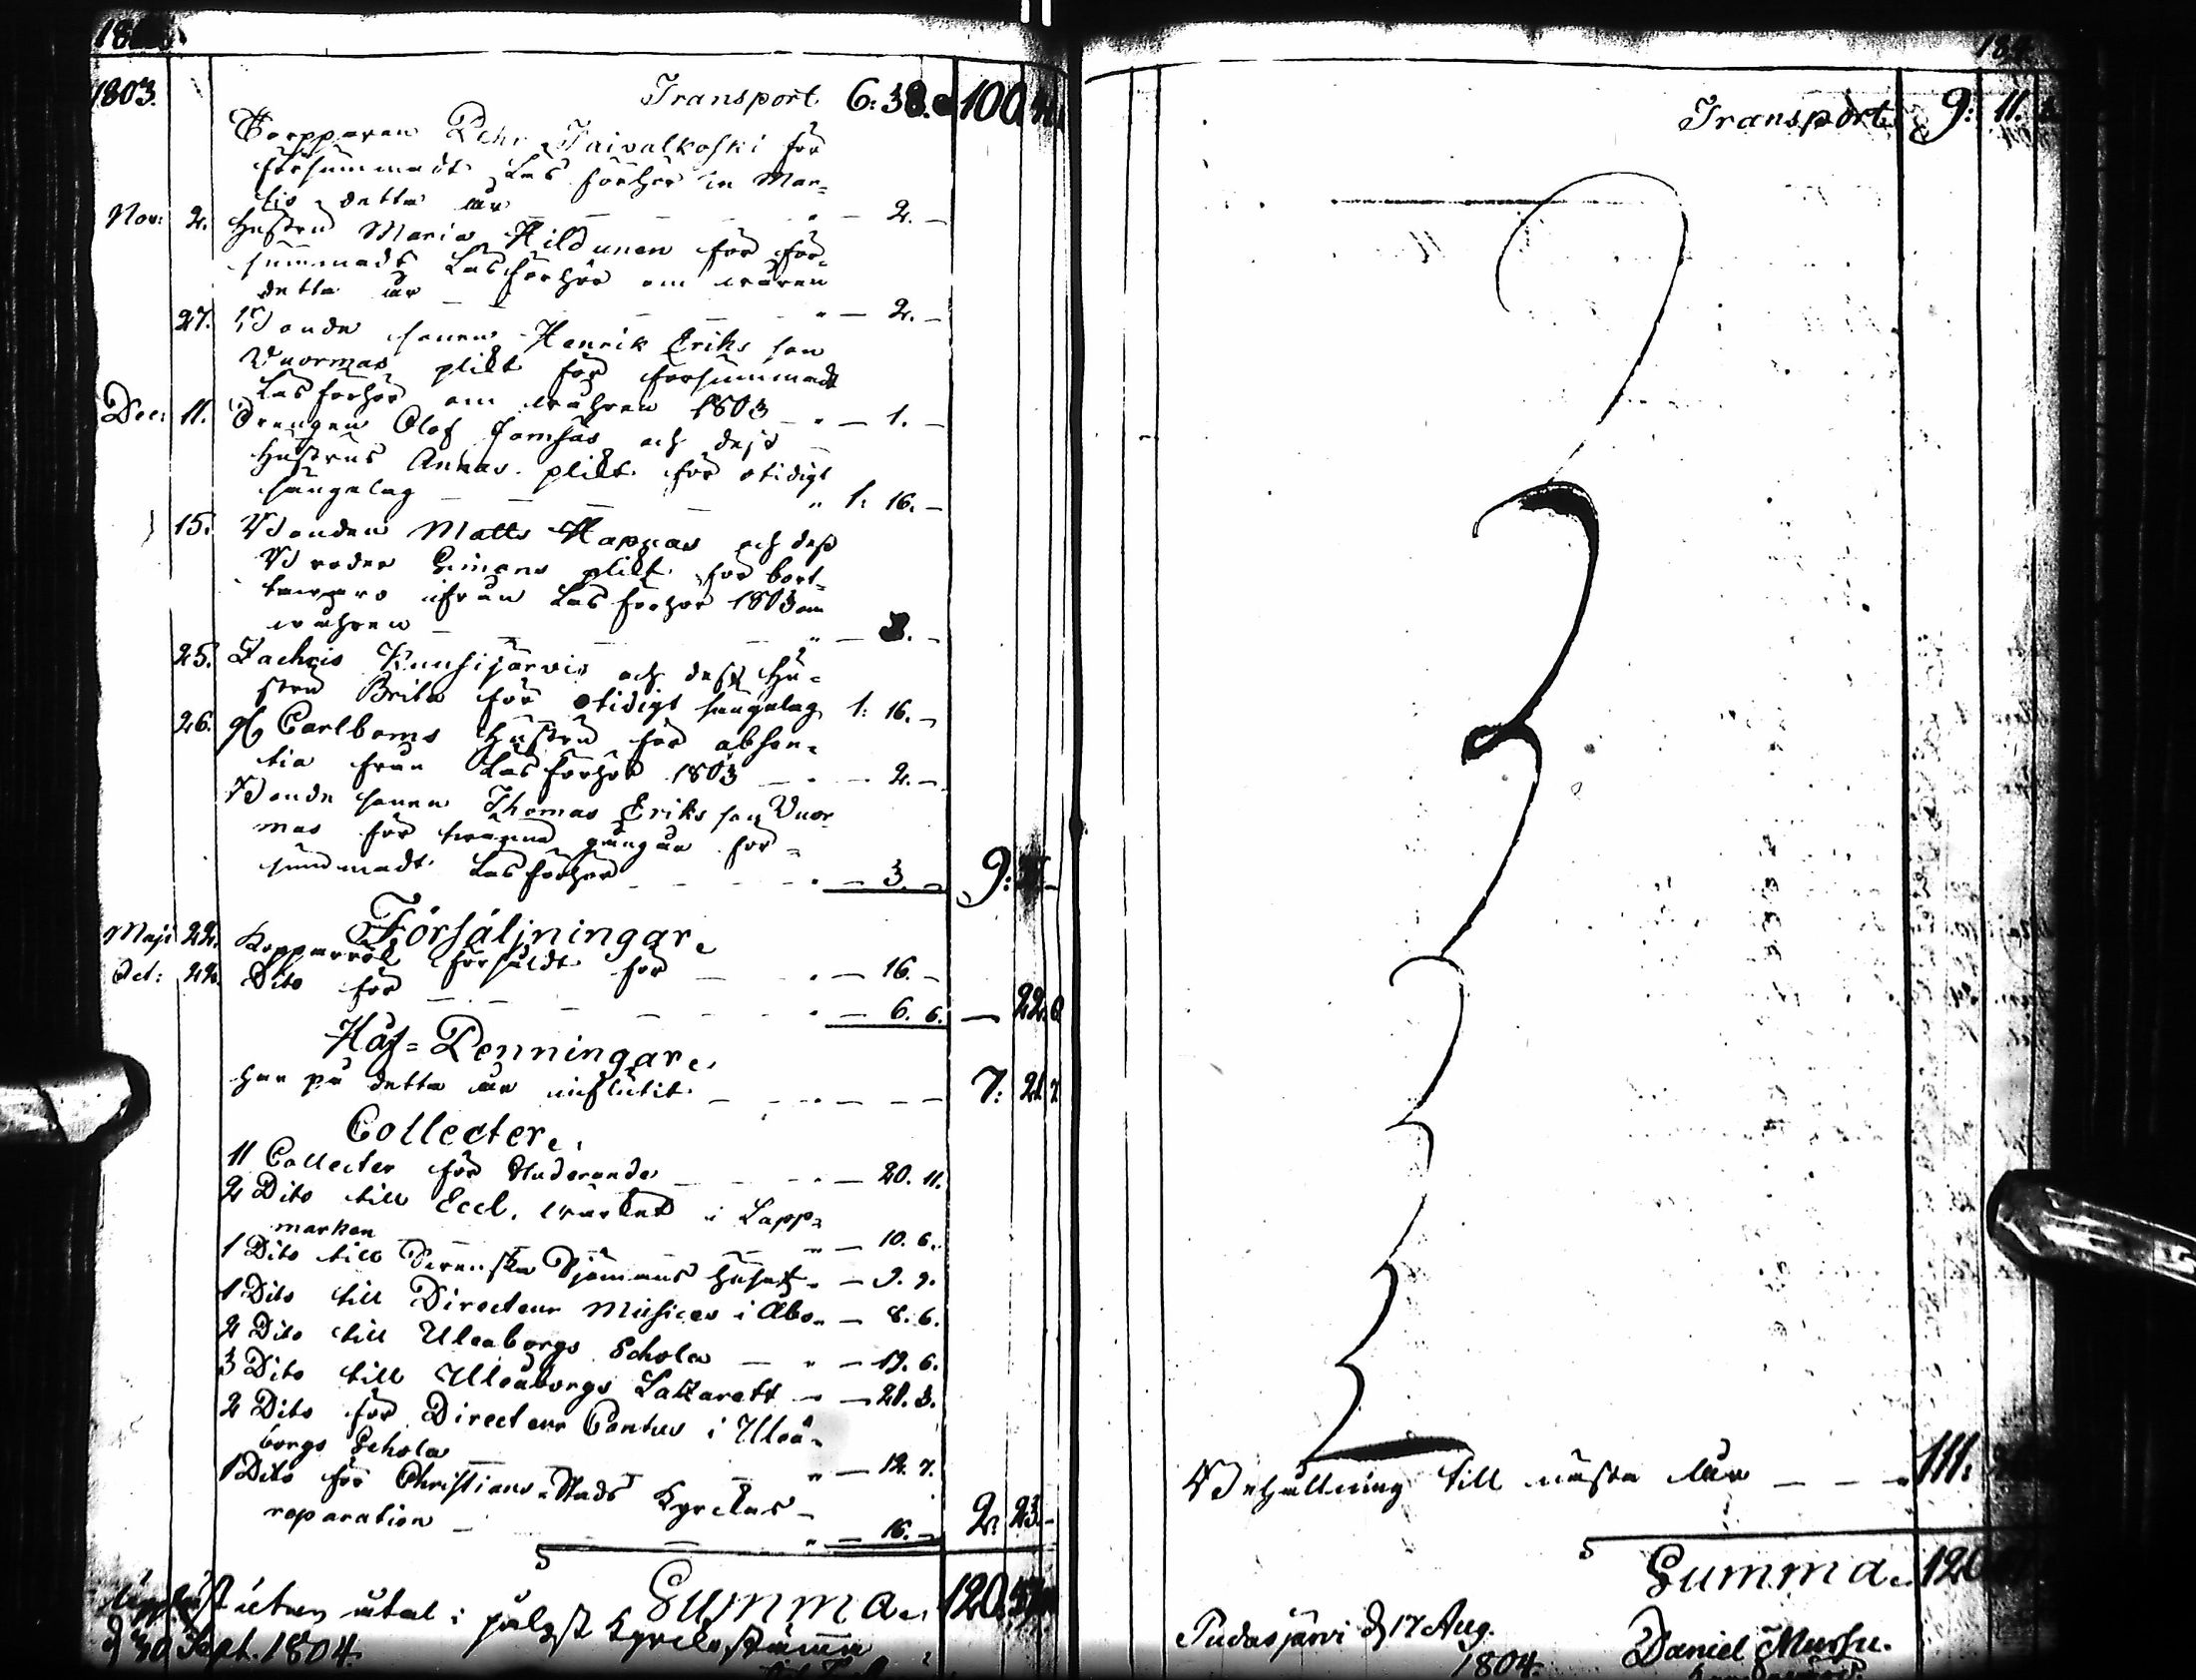 1803. Transport 6: 38. 100.
Torpparen Pehr Taivalkoski för
försummadt Läs förhör in Mar-
tio detta år " — 2. —
Nov: 2. Hustru Maria Hildunen för för-
summadt Läsförhör om wåren
detta år " — 2. —
27. Bonde sonen Henrik Eriks son
Vuormas plikt för försummadt
Läsförhör om wåhren 1803 " — 1. —
Dec: 11. Drengen Olof Jamsás och dess
Hustrus Annas plikt för otidigt
sängelag " 1: 16. —
15. Bonden Matts och dess
Broder Simons plikt för bort-
ifrån Läs förhör 1803 om
wåhren " — 3. —
25. Zachris Kuusijärvi och dess Hu-
stru Brita för otidigt sängelag 1: 16. —
26. Carlboms Hustru för absen-
tia från Läsförhör 1803 — 2. —
Bonde sonen Thomas Eriks son Vuor-
mas för twänne gångor för-
summadt Läsförhör — 3. — 9:
Försäljningar.
Maji 22. Kopparrök försåldt för " — 16. —
Oct: 22. Dito för " — 6. 6. — 22. 6
Håf-Penningar.
Har på detta år influtit 7: 21. 7
Collecter.
11 Collecter för Studerande " — 20. 11.
2 Dito till Eccl. wärket i Lapp-
marken " — 10. 6.
1 Dito till Svenska Sjömans Huset " — 9. 9.
1 Dito till Directeur Musices i Åbo " — 8. 6.
2 Dito till Uleåborgs Schola " — 19. 6.
3 Dito till Uleåborgs Lazarett — 21. 3.
2 Dito för Directeur Cantus i Uleå-
borgs Schola " — 12. 7.
1 Dito för Christians-Stads Kyrckas
reparation " — 16. — 2: 23. —
Summa 120.
Uppläst utan åtal i pålyst Kyrckostämma
d 30 Sept. 1804.
Transport 9: 11.
Behållning till nästa år — — " 111:
Summa 120
Pudasjärvi d 17 Aug.
1804.
Daniel Mursu.